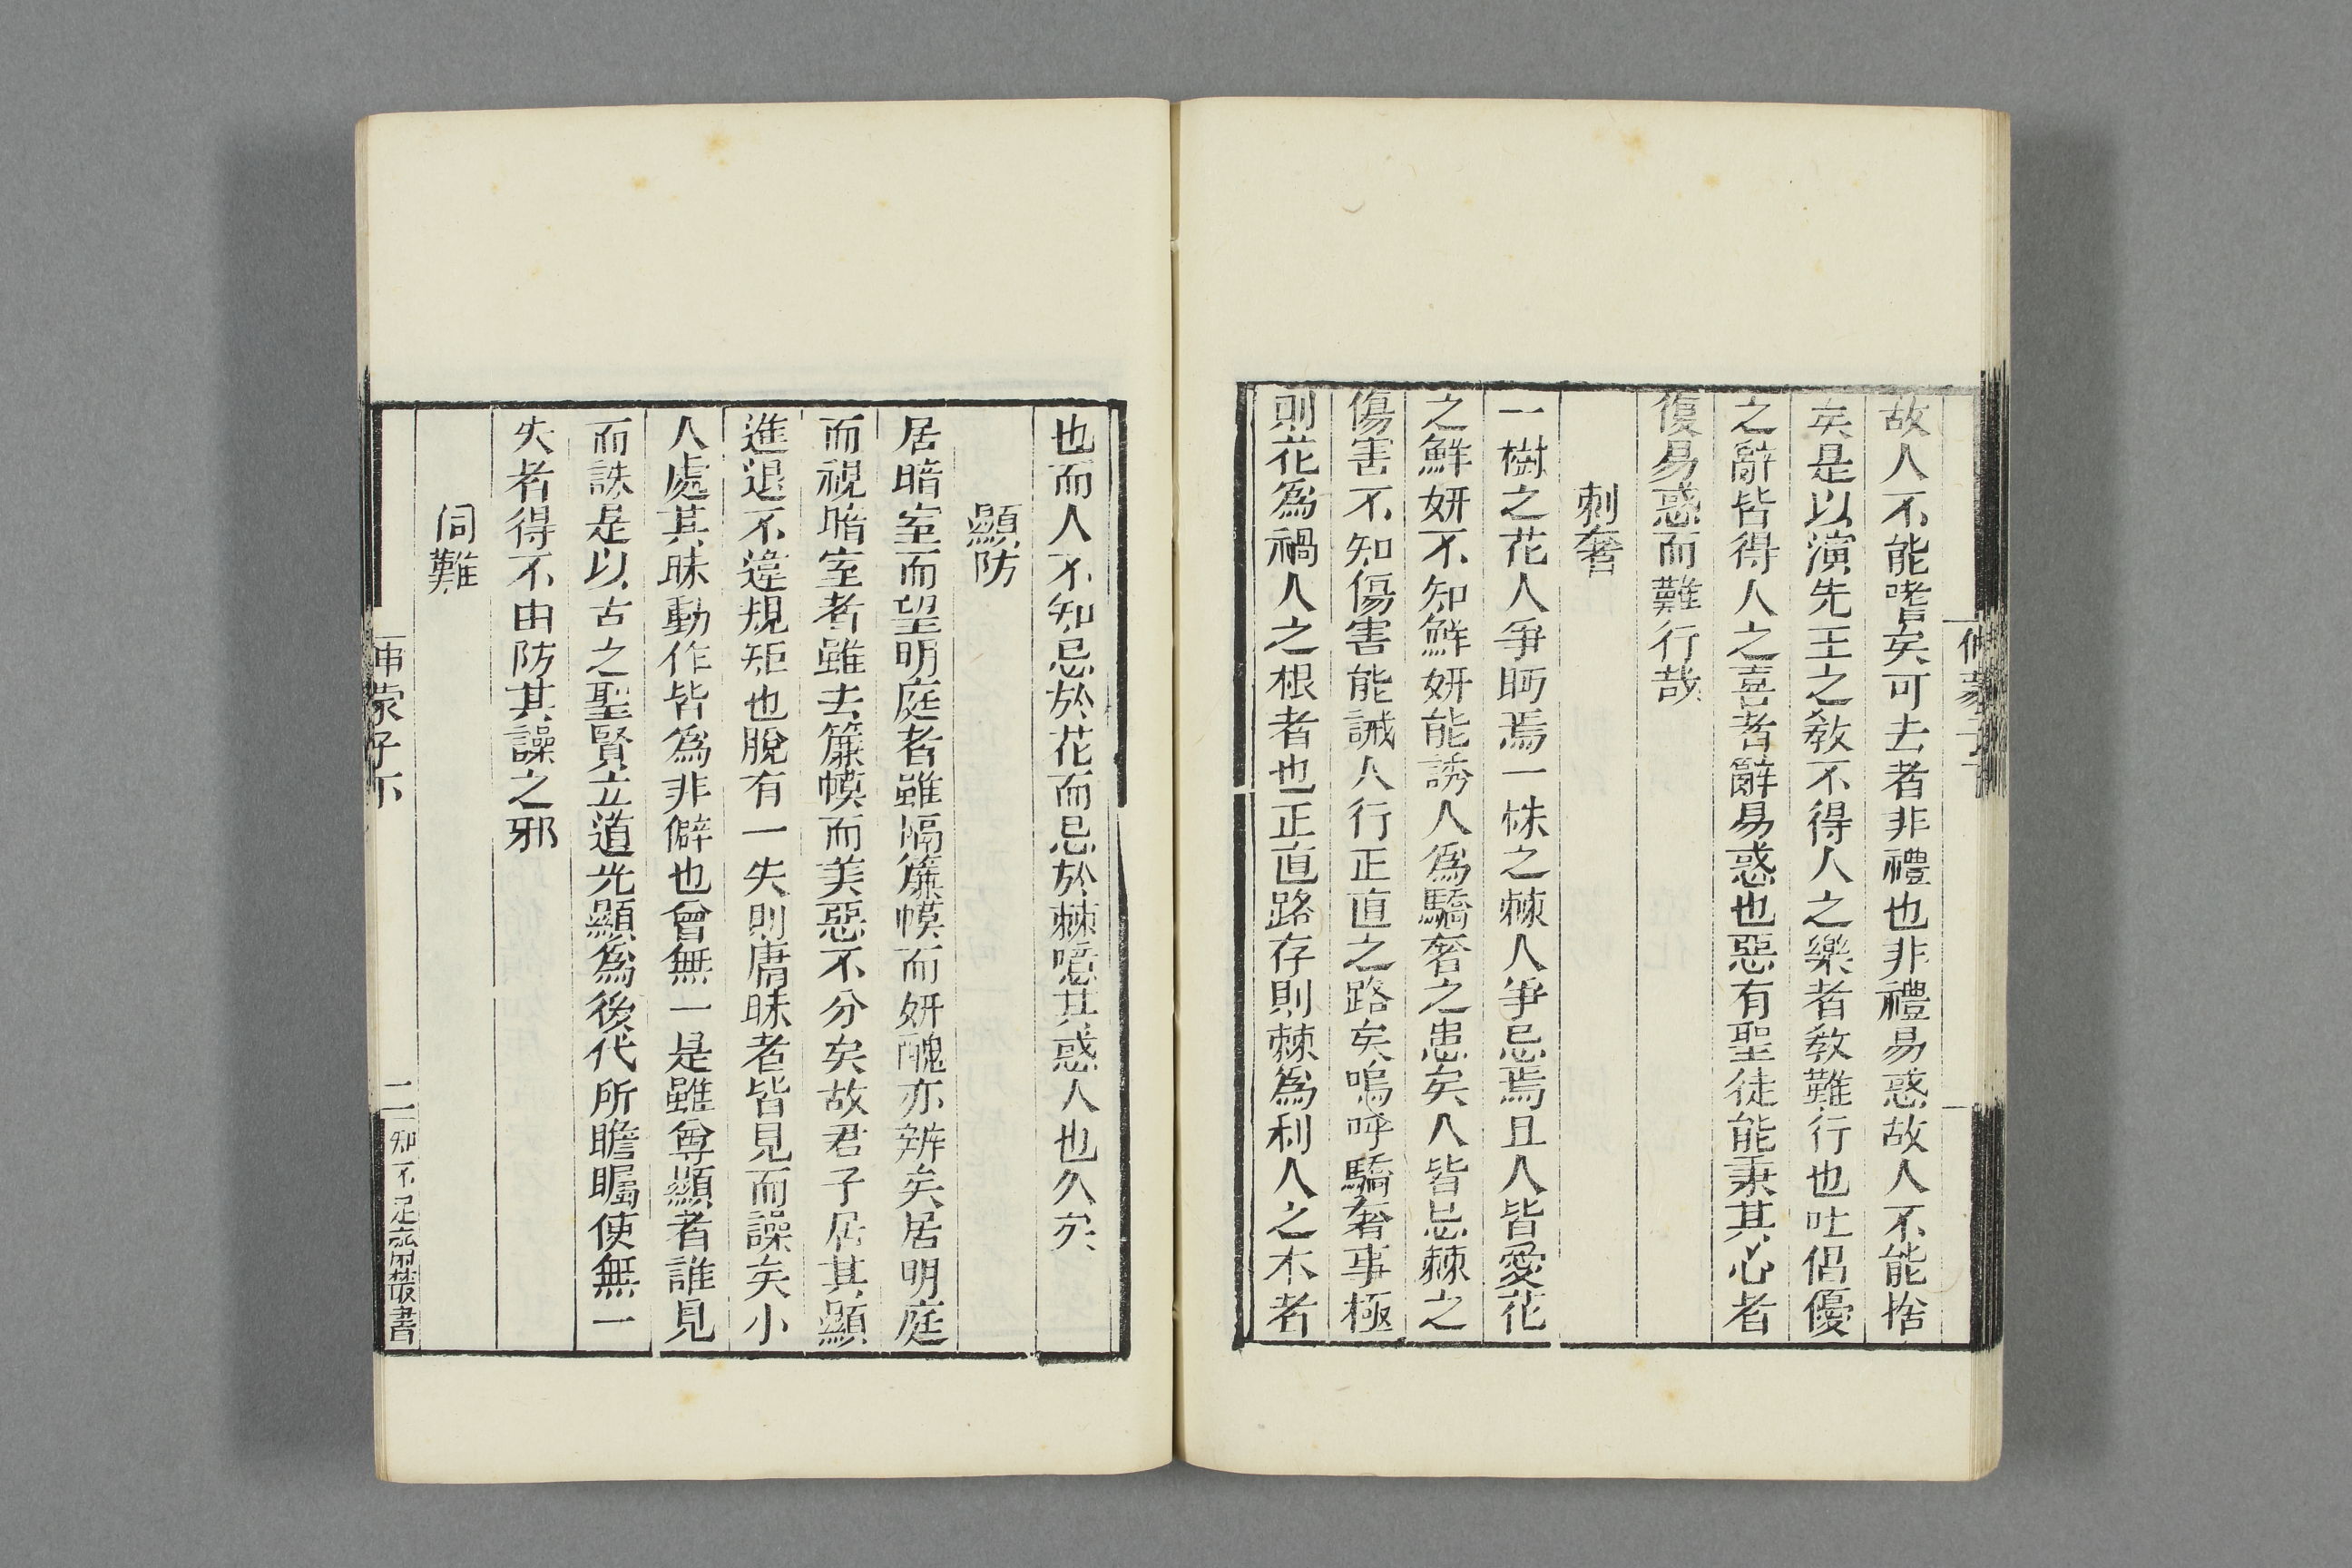 故人不能嗜矣可去者非禮也非禮易惑故人不能捨
矣是以演先王之敎不得人之樂者敎難行也吐侶優
之辭皆得人之喜者辭易惑也惡有聖徒能秉其心者
復易惑而難行哉
刺奢
一樹之花人爭眄焉一株之棘人爭忌焉且人皆愛花
之鮮妍不知鮮妍能誘人爲驕奢之患矣人皆忌棘之
傷害不知傷害能誡人行正直之路矣嗚呼驕奢事極
則花爲禍人之根者也正直路存則棘爲利人之木者
也而人不知忌於花而忌於棘噫其惑人也久矣
顯防
居暗室而望明庭者雖隔簾幙而妍醜亦辨矣居明庭
而視暗室者雖去簾幙而美惡不分矣故君子居其顯
進退不違規矩也脫有一失則庸昧者皆見而譟矣小
人處其昧動作皆爲非僻也曾無一是雖尊顯者誰見
而誅是以古之聖賢立道光顯爲後代所瞻矚使無一
失者得不由防其譟之邪
伺難
蒙子下
二
知不足齋叢書